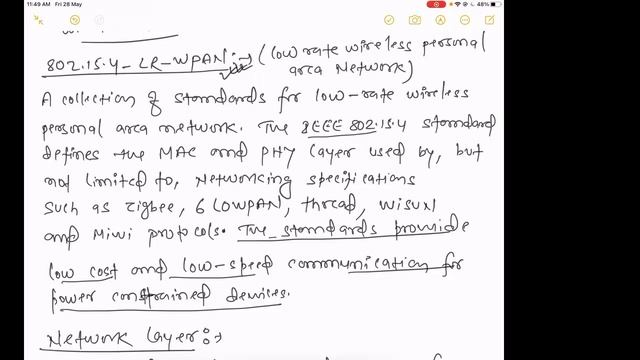 11:49 AM Fri 28 May
48%
802.15.4-LR-WPAN:→ (low rate wireless personal
area Network)
A collection of standards for low-rate wireless
personal area network. The IEEE 802.15.4 standard
defines the MAC and PHY layer used by, but
not limited to, Networking specifications
such as zigbee, 6 LOWPAN, thread, wisun
and Miwi protocols. The standards provide
low cost and low-speed communication for
power constrained devices.
Network Layer:→